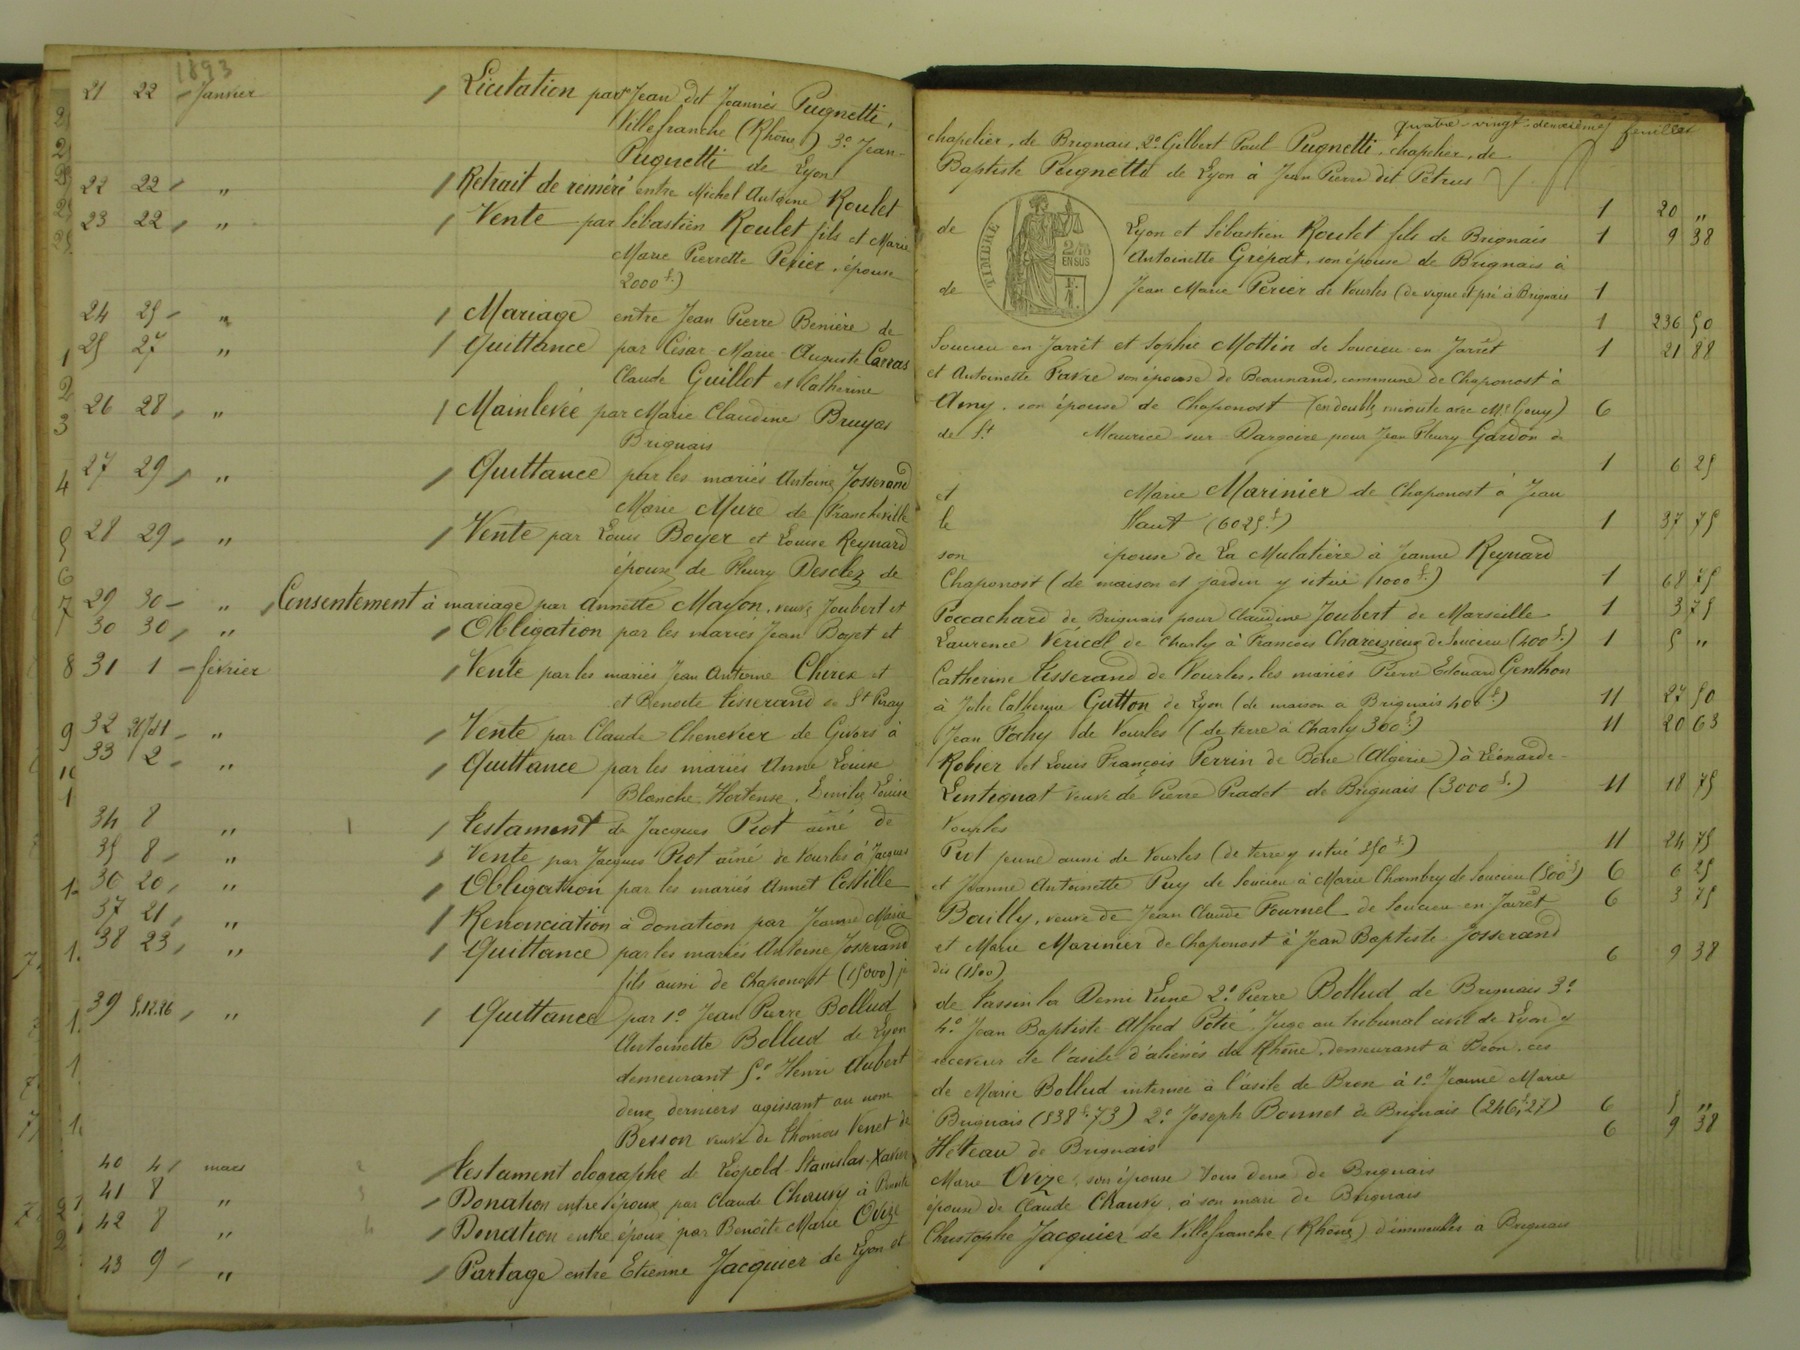 1893
quatre-vingt-deuxième feuillet
21 22 - Janvier / Licitation par 1º Jean dit Joannès Pugnetti, chapelier, de Brignais, 2º Gilbert Paul Pugnetti, chapelier, de
Villefranche (Rhône) 3º Jean- Baptiste Pugnetti de Lyon à Jean Pierre dit Pétrus
Pugnetti de Lyon 1 20 "
22 22 / " / Retrait de réméré entre Michel Antoine Roulet de Lyon et Sébastien Roulet fils de Brignais 1 9 38
23 22 / " / Vente par Sébastien Roulet fils et Marie Antoinette Grépat, son épouse de Brignais à
Marie Pierrette Perier, épouse de Jean Marie Perier de Vourles (de vigne et pré à Brignais 1
2000 f.) 1 236 50
TIMBRE
2/10
EN SUS
24 25 - " / Mariage entre Jean Pierre Benière de Soucieu en Jarrêt et Sophie Mottin de Soucieu en Jarrêt 1 21 88
25 27 " / Quittance par César Marie Auguste Carras et Antoinette Favre son épouse de Beaunand, commune de Chaponost à
Claude Guillot et Catherine Amy, son épouse de Chaponost (en double minute avec Me Gouy) 6
26 28 / " / Mainlevée par Marie Claudine Bruyas de St Maurice sur Dargoire pour Jean Fleury Gardon de
Brignais 1 6 25
27 29 / " / Quittance par les mariés Antoine Josserand et Marie Marinier de Chaponost à Jean
Marie Mure de Francheville le Haut (6025 f.) 1 37 75
28 29 / " / Vente par Louis Boyer et Louise Reynard son épouse de La Mulatière à Jeanne Reynard
épouse de Fleury Desclez de Chaponost (de maison et jardin y situé 1000 f.) 1 68 75
29 30 - " / Consentement à mariage par Annette Mayon, veuve Joubert et Poccachard de Brignais pour Claudine Joubert de Marseille 1 3 75
30 30 / " / Obligation par les mariés Jean Boyet et Laurence Véricel de Charly à François de Soucieu (400 f.) 1 5 "
31 1 - février / Vente par les mariés Jean Antoine et Catherine Tisserand de Vourles, les mariés Pierre Edouard Genthon
et Benoite Tisserand de St Péray à Julie Catherine Gutton de Lyon (de maison à Brignais 400 f.) 11 27 50
32 " / Vente par Claude Chenevier de Givors à Jean Fahy de Vourles (de terre à Charly 300 f.) 11 20 63
33 2 - " / Quittance par les mariés Anne Louise Robier et Louis François Perrin de Bône (Algérie) à Léonarde-
Blanche, Hortense, Emilie Louise Lintignat veuve de Pierre Pradet de Brignais (3000 f.) 11 18 75
34 8 " 1 / Testament de Jacques Piot aîné de Vourles
35 8 - " / Vente par Jacques Piot aîné de Vourles à Jacques Piot jeune aussi de Vourles (de terre y situé 250 f.) 11 24 75
36 20 / " / Obligation par les mariés Annet Cestille et Jeanne Antoinette Puy de Soucieu à Marie Chambry de Soucieu (500 f.) 6 6 25
37 21 / " / Renonciation à donation par Jeanne Marie Bailly, veuve de Jean Claude Fournel de Soucieu en Jarrêt 6 3 75
38 23 / " / Quittance par les mariés Antoine Josserand et Marie Marinier de Chaponost à Jean Baptiste Josserand
fils aussi de Chaponost (15000) je dis (1500) 6 9 38
39 5.12.26 / " / Quittance par 1º Jean Pierre Bollud de Tassin la Demi Lune 2º Pierre Bollud de Brignais 3º
Antoinette Bollud de Lyon 4º Jean Baptiste Alfred Potié, Juge au tribunal civil de Lyon y
demeurant 5º Henri Aubert receveur de l'asile d'aliénés du Rhône, demeurant à Bron, ces
deux derniers agissant au nom de Marie Bollud internée à l'asile de Bron à 1º Jeanne Marie
Besson veuve de Thomas Venet de Brignais (838 f. 73) 2º Joseph Bonnet de Brignais (246 f. 27) 6 5 "
6 9 38
40 4 / mars 2 / Testament olographe de Léopold-Stanislas-Xavier Héteau de Brignais
41 8 " 3 / Donation entre époux par Claude Chauvy à Benoite Marie Ovize, son épouse tous deux de Brignais
42 8 " 4 / Donation entre époux par Benoîte Marie Ovize épouse de Claude Chauvy, à son mari de Brignais
43 9 - " / Partage entre Etienne Jacquier de Lyon et Christophe Jacquier de Villefranche (Rhône) d'immeubles à Brignais